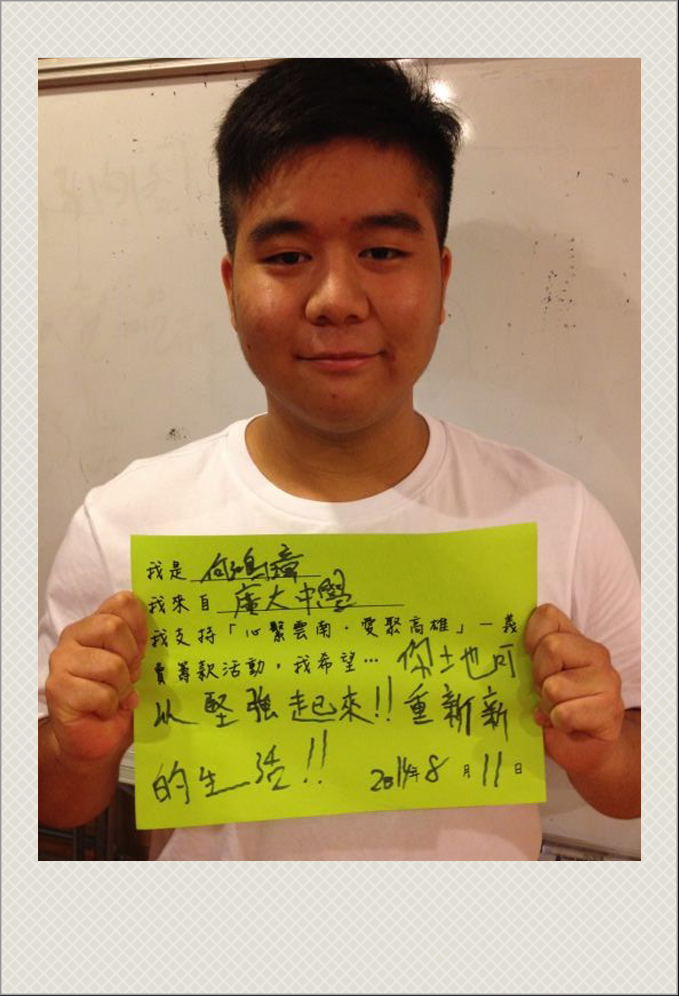 我是 何鴻
我來自 廣大中學
我支持「心繫雲南．愛聚高雄」一義
賣籌款活動，我希望… 你地可
以堅強起來!!重新新
的生活!! 2014年8月11日